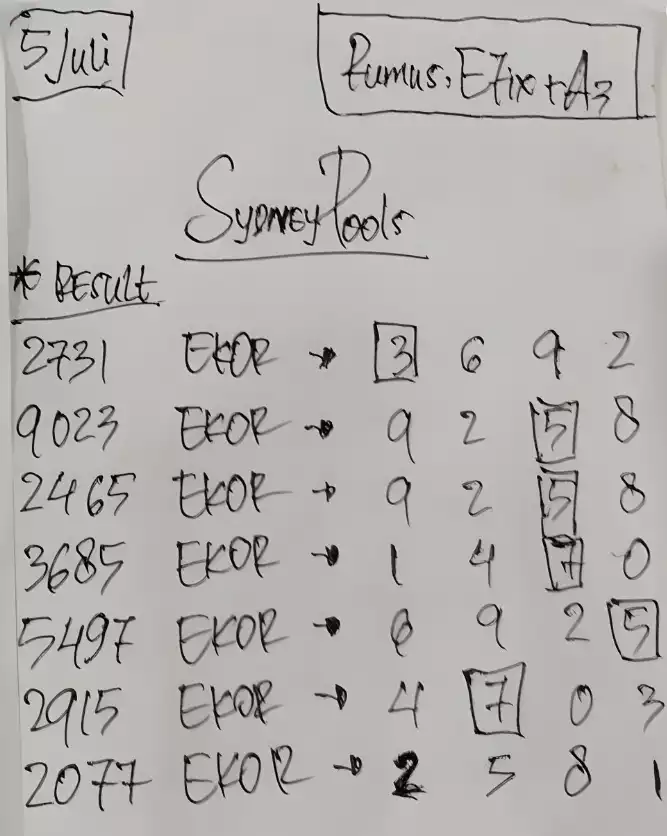 5 Juli
Rumus: Efix + A3
Sydney Pools
* RESULT
2731 EKOR → 3 6 9 2
9023 EKOR → 9 2 5 8
2465 EKOR → 9 2 5 8
3685 EKOR → 1 4 7 0
5497 EKOR → 6 9 2 5
2915 EKOR → 4 7 0 3
2077 EKOR → 2 5 8 1